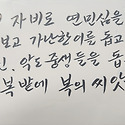 자비로 연민심을
보고 가난한 이를 돕고
악도 중생들을 돕
복밭에 복의 씨앗